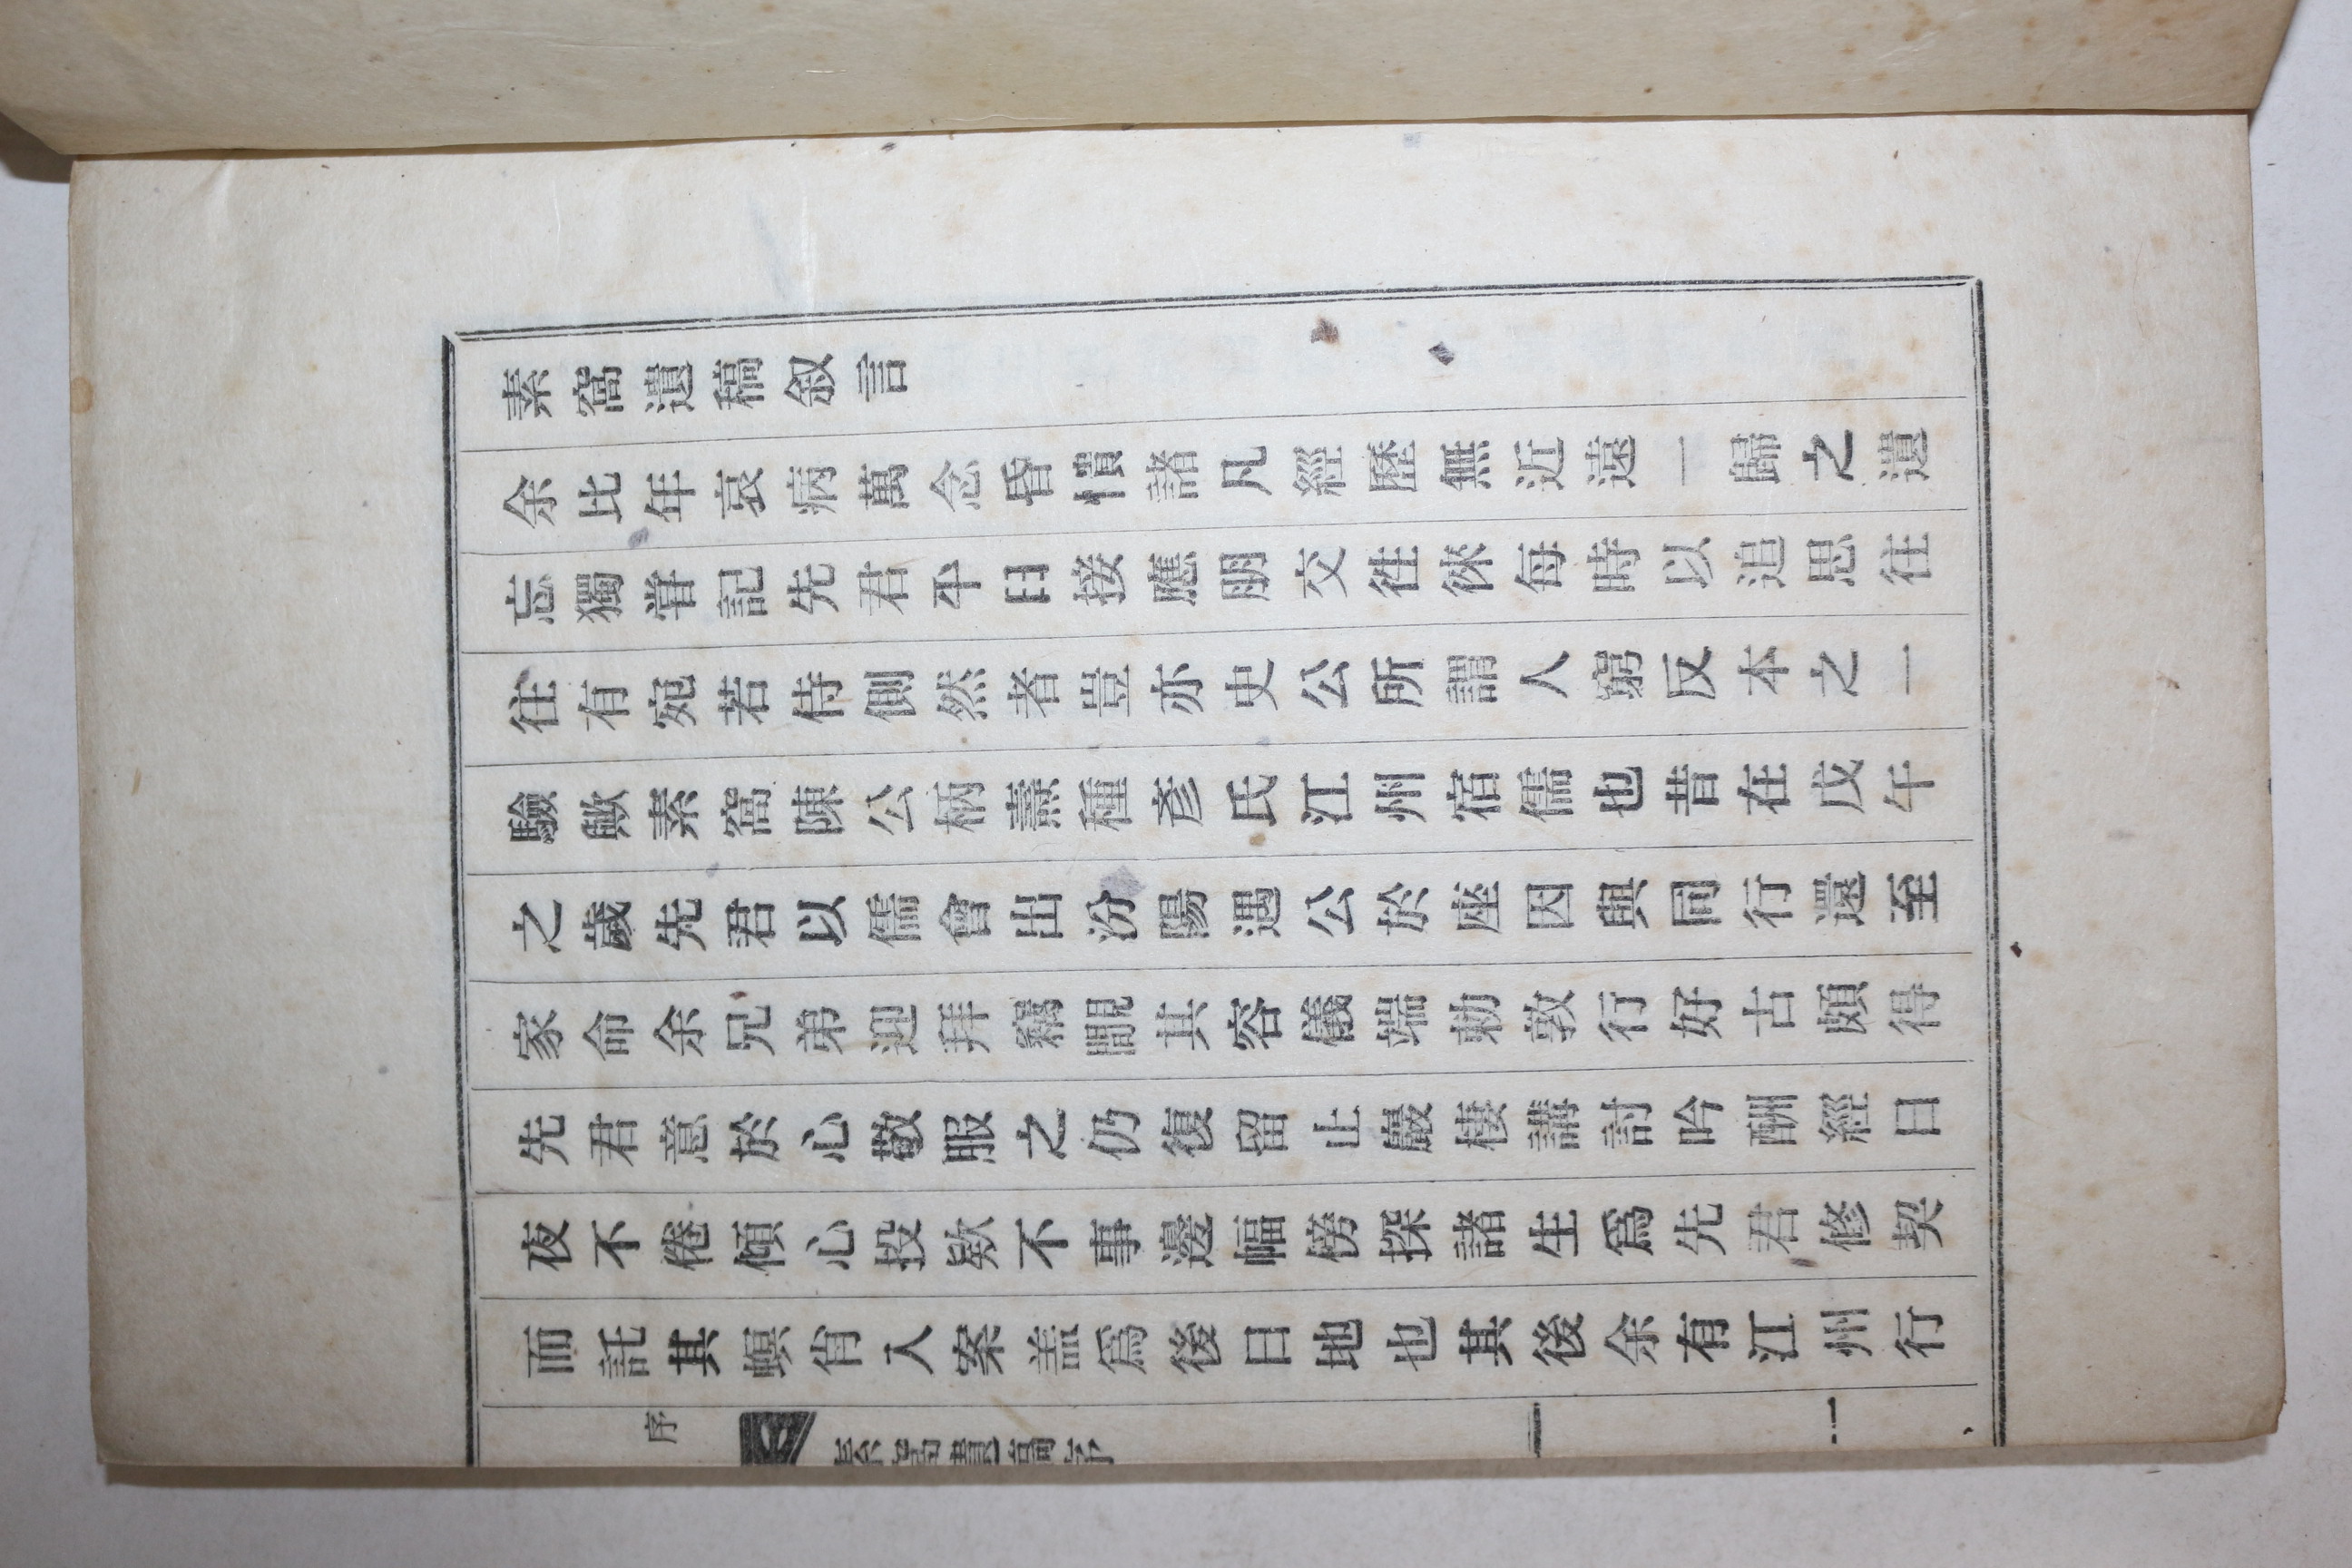 素窩遺稿叙言
余比年衰病萬念昏憒諸凡經歷無近遠一歸之遺
忘獨甞記先君平日接應朋交徃徠每時以追思往
往有宛若侍側然者豈亦史公所謂人窮反本之一
驗歟素窩陳公柄燾種彥氏江州宿儒也昔在戊午
之歲先君以儒會出汾陽遇公於座因與同行還至
家命余兄弟迎拜竊覸其容儀端勅敦行好古頗得
先君意於心敬服之仍復留止巖棲講討吟酬經日
夜不倦傾心投欵不事邊幅傍探諸生爲先君修契
而託其螟肖人案盖爲後日地也其後余有江州行
序